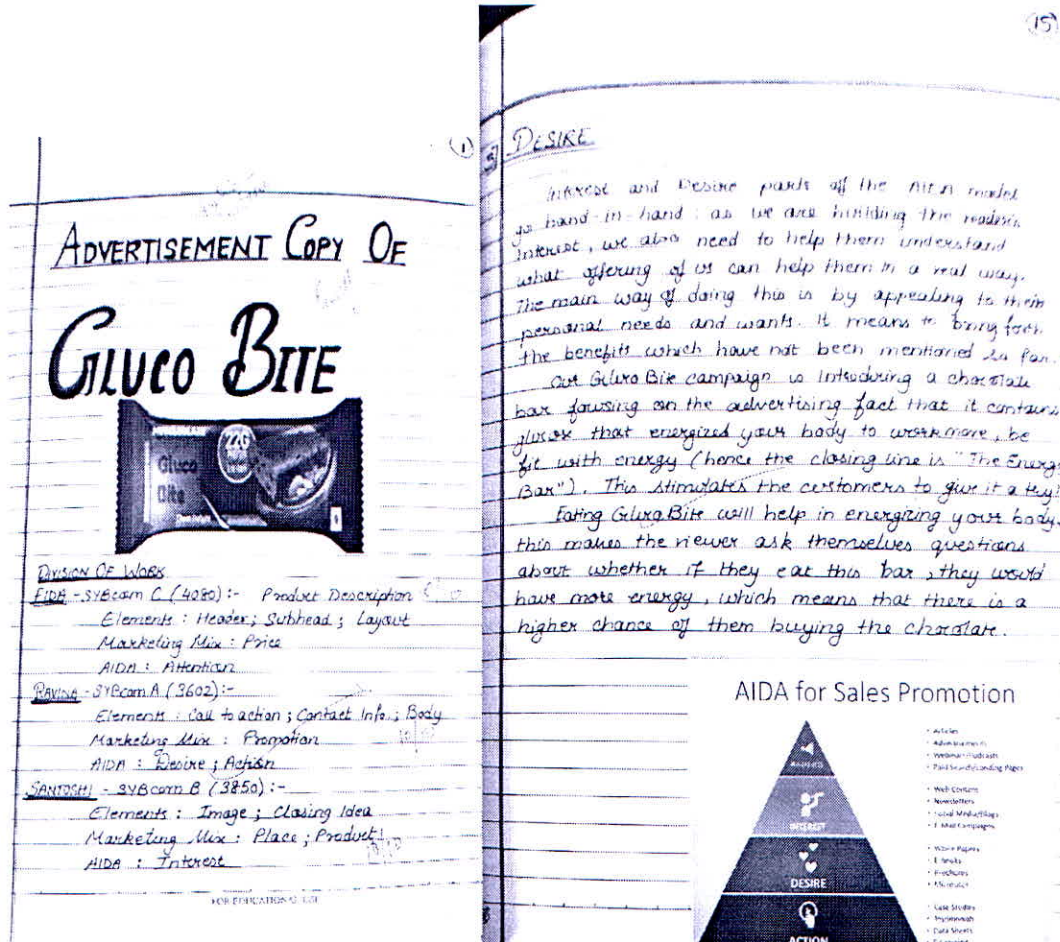 1
ADVERTISEMENT COPY OF
GLUCO BITE
22G
Gluco
Bite
DIVISION OF WORK
FIDA - SYBcom C (4080) :- Product Description
Elements : Header; Subhead ; Layout
Marketing Mix : Price
AIDA : Attention
RAVINA - SYBcom A (3602) :-
Elements : Call to action ; Contact Info ; Body
Marketing Mix : Promotion
AIDA : Desire ; Action
SANTOSHI - SYBcom B (3850) :-
Elements : Image ; Closing Idea
Marketing Mix : Place ; Product
AIDA : Interest
FOR EDUCATIONAL USE
15
3] DESIRE
Interest and Desire parts off the AIDA model
go hand-in-hand : as we are building the reader's
interest, we also need to help them understand
what offering of us can help them in a real way.
The main way of doing this is by appealing to their
personal needs and wants. It means to bring forth
the benefits which have not been mentioned so far.
Our Gluco Bite campaign is introducing a chocolate
bar focusing on the advertising fact that it contains
glucose that energized your body to work more, be
fit with energy (hence the closing line is "The Energy
Bar"). This stimulates the customers to give it a try!
Eating Gluco Bite will help in energizing your body.
this makes the viewer ask themselves questions
about whether if they eat this bar, they would
have more energy, which means that there is a
higher chance of them buying the chocolate.
AIDA for Sales Promotion
• Articles
• Advertisements
• Webinars/Podcasts
• Paid Search/Landing Pages
INTEREST
• Web Content
• Newsletters
• Social Media/Blogs
• E-Mail Campaigns
DESIRE
• White Papers
• E-Books
• Brochures
• Microsites
ACTION
• Case Studies
• Testimonials
• Data Sheets